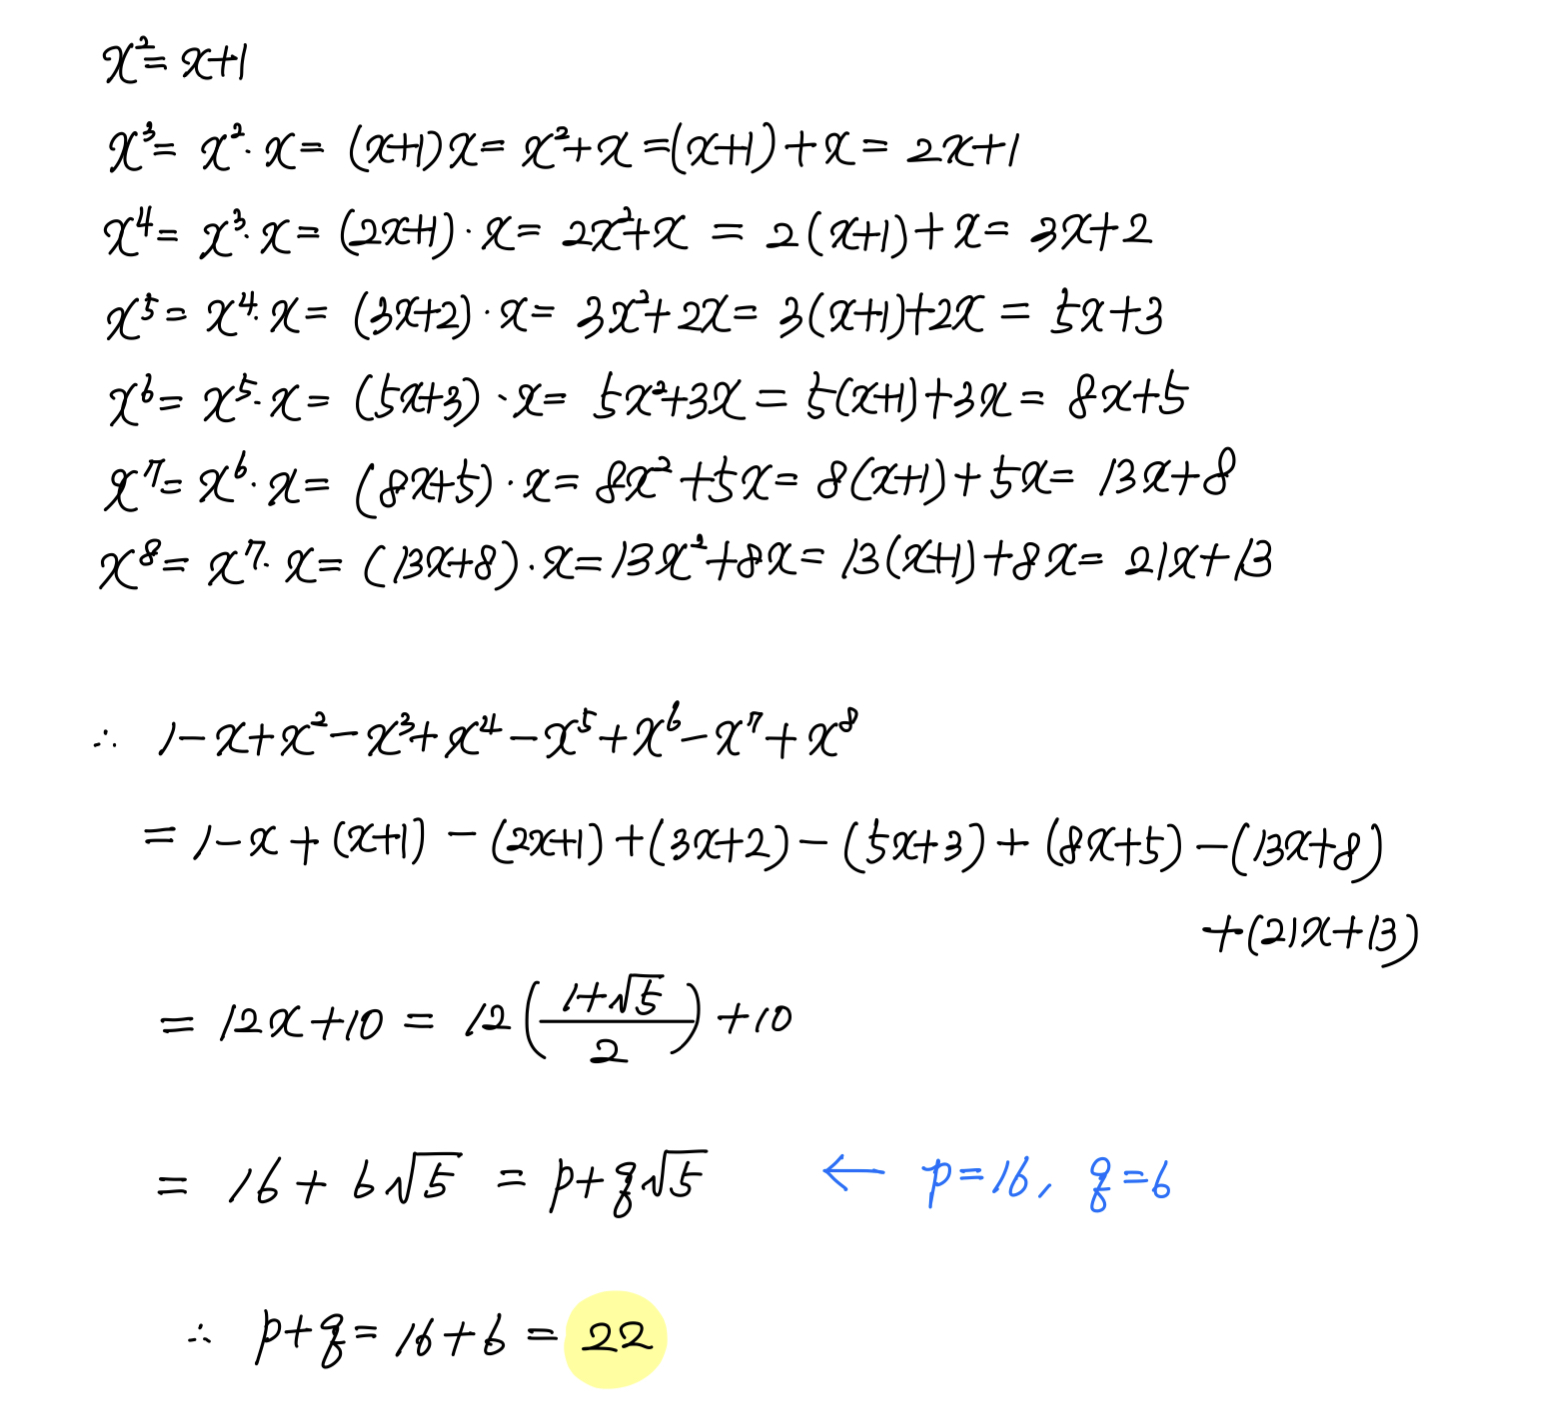 x² = x+1
x³ = x²·x = (x+1)x = x²+x = (x+1)+x = 2x+1
x⁴ = x³·x = (2x+1)·x = 2x²+x = 2(x+1)+x = 3x+2
x⁵ = x⁴·x = (3x+2)·x = 3x²+2x = 3(x+1)+2x = 5x+3
x⁶ = x⁵·x = (5x+3)·x = 5x²+3x = 5(x+1)+3x = 8x+5
x⁷ = x⁶·x = (8x+5)·x = 8x²+5x = 8(x+1)+5x = 13x+8
x⁸ = x⁷·x = (13x+8)·x = 13x²+8x = 13(x+1)+8x = 21x+13
∴ 1-x+x²-x³+x⁴-x⁵+x⁶-x⁷+x⁸
= 1-x+(x+1)-(2x+1)+(3x+2)-(5x+3)+(8x+5)-(13x+8)
+(21x+13)
= 12x+10 = 12((1+√5)/2)+10
= 16+6√5 = p+q√5 ← p=16, q=6
∴ p+q = 16+6 = 22